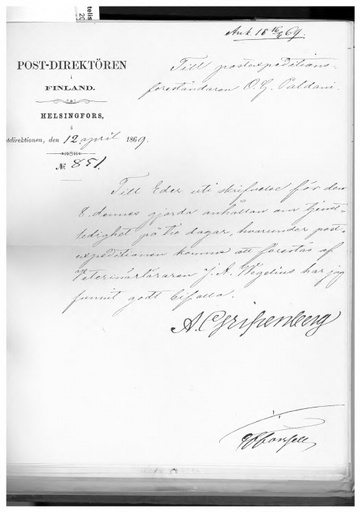 Ank. 15 16/4 69.
POST-DIREKTÖREN
i
FINLAND.
HELSINGFORS,
å
stdirektionen, den 12 april 1869.
№ 851.
Till postexpeditions-
föreståndaren O. G. Paldani.
Till Eder uti skrifvelse för den
8 dennes gjorda anhållan om tjenst-
ledighet på tio dagar, hvarunder post-
expeditionen komme att förestås af
Veterinärläraren J. A. Wegelius har jag
funnit godt bifalla.
A. Gripenberg